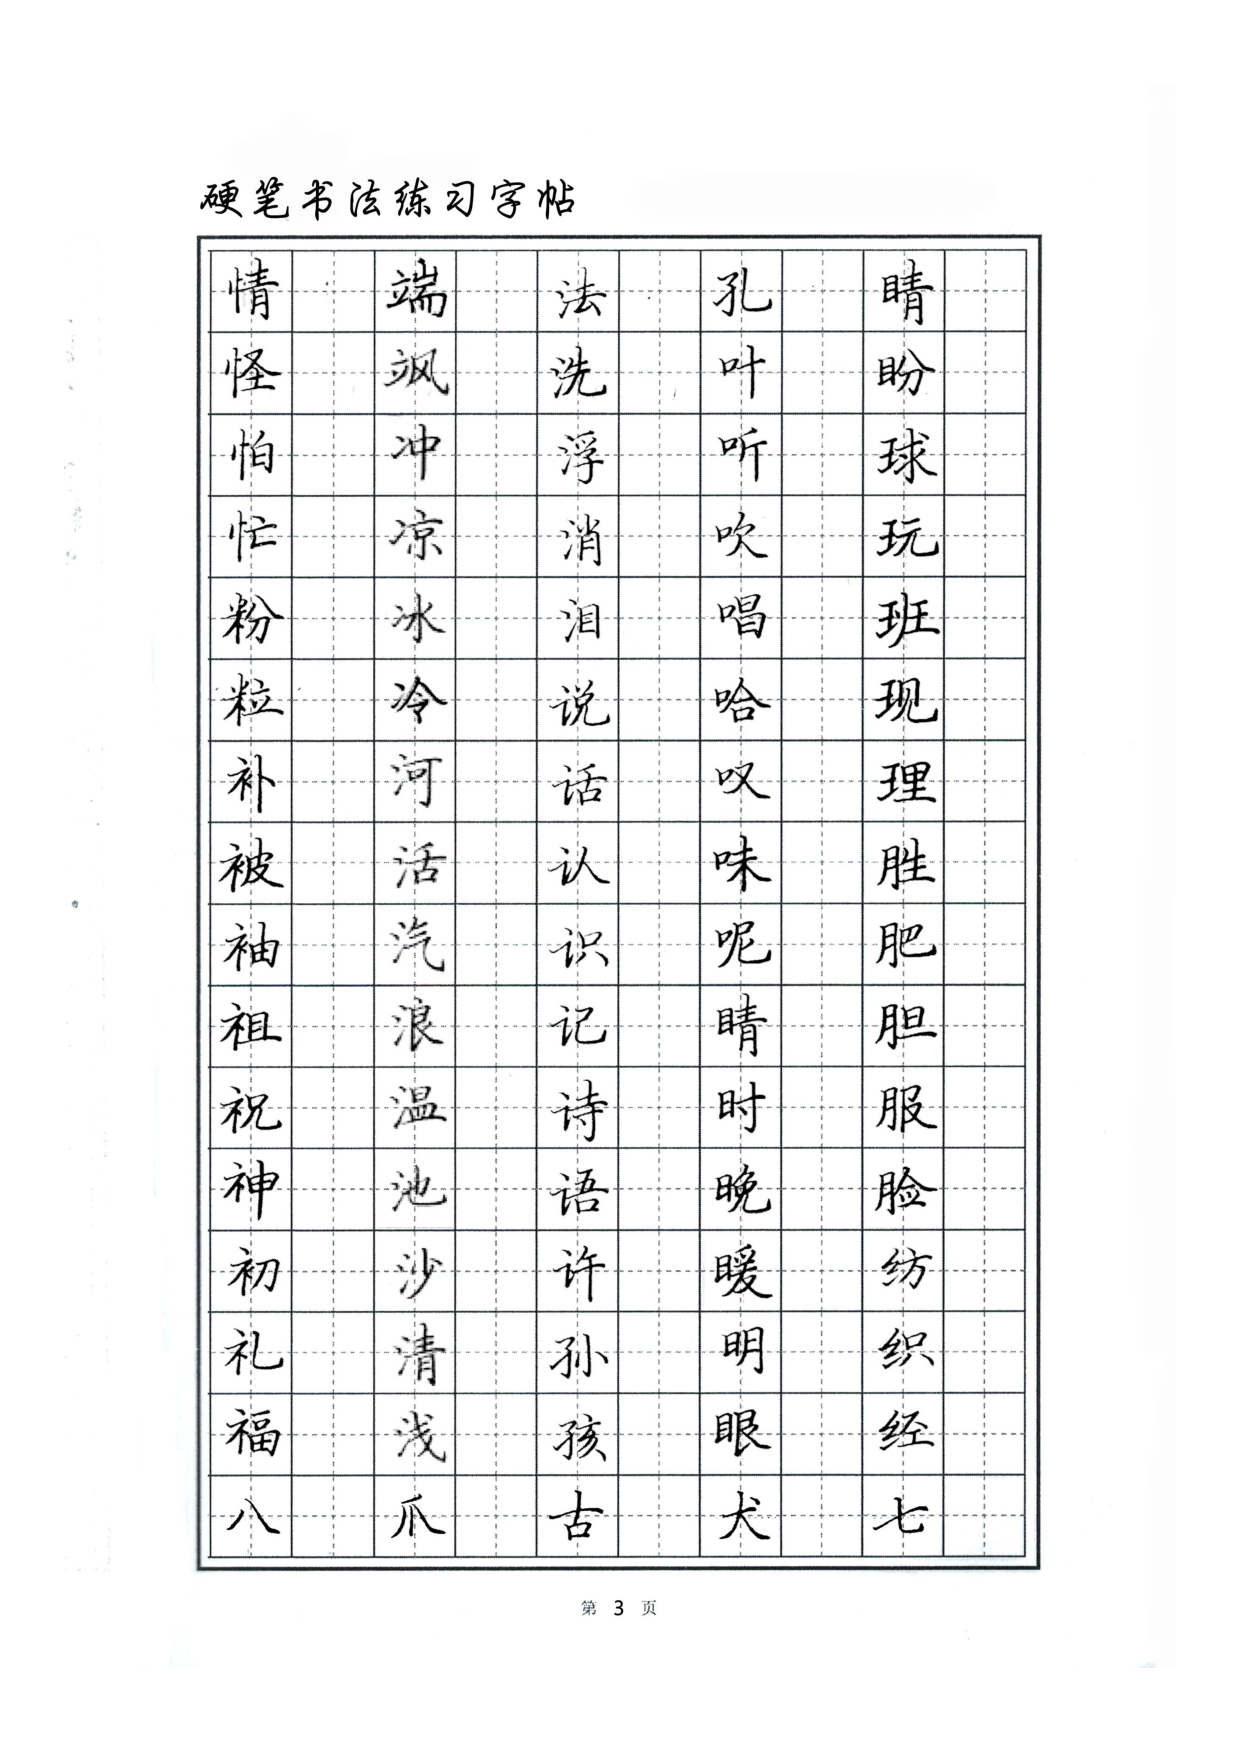 硬笔书法练习字帖
情 端 法 孔 睛
怪 飒 洗 叶 盼
怕 冲 浮 听 球
忙 凉 消 吹 玩
粉 冰 泪 唱 班
粒 冷 说 哈 现
补 河 话 叹 理
被 活 认 味 胜
袖 汽 识 呢 肥
祖 浪 记 晴 胆
祝 温 诗 时 服
神 池 语 晚 脸
初 沙 许 暖 纺
礼 清 孙 明 织
福 浅 孩 眼 经
八 爪 古 犬 七
第 3 页